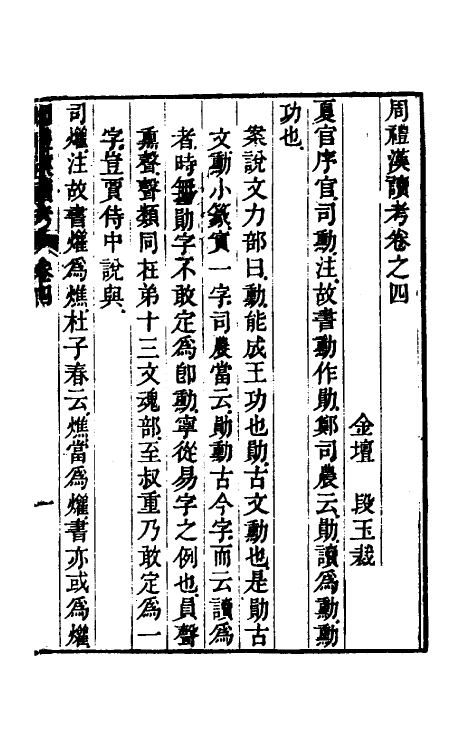 周禮漢讀考卷之四
金壇 段玉裁
夏官序官司勳注故書勳作勛鄭司農云勛讀爲勳勳
功也
案說文力部曰勳能成王功也勛古文勳也是勛古
文勳小篆實一字司農當云勛勳古今字而云讀爲
者時無勛字不敢定爲卽勳寧從易字之例也員聲
熏聲聲類同在弟十三文魂部至叔重乃敢定爲一
字豈賈侍中說與
司爟注故書爟爲燋杜子春云燋當爲爟書亦或爲爟
周禮漢讀考 卷四
一